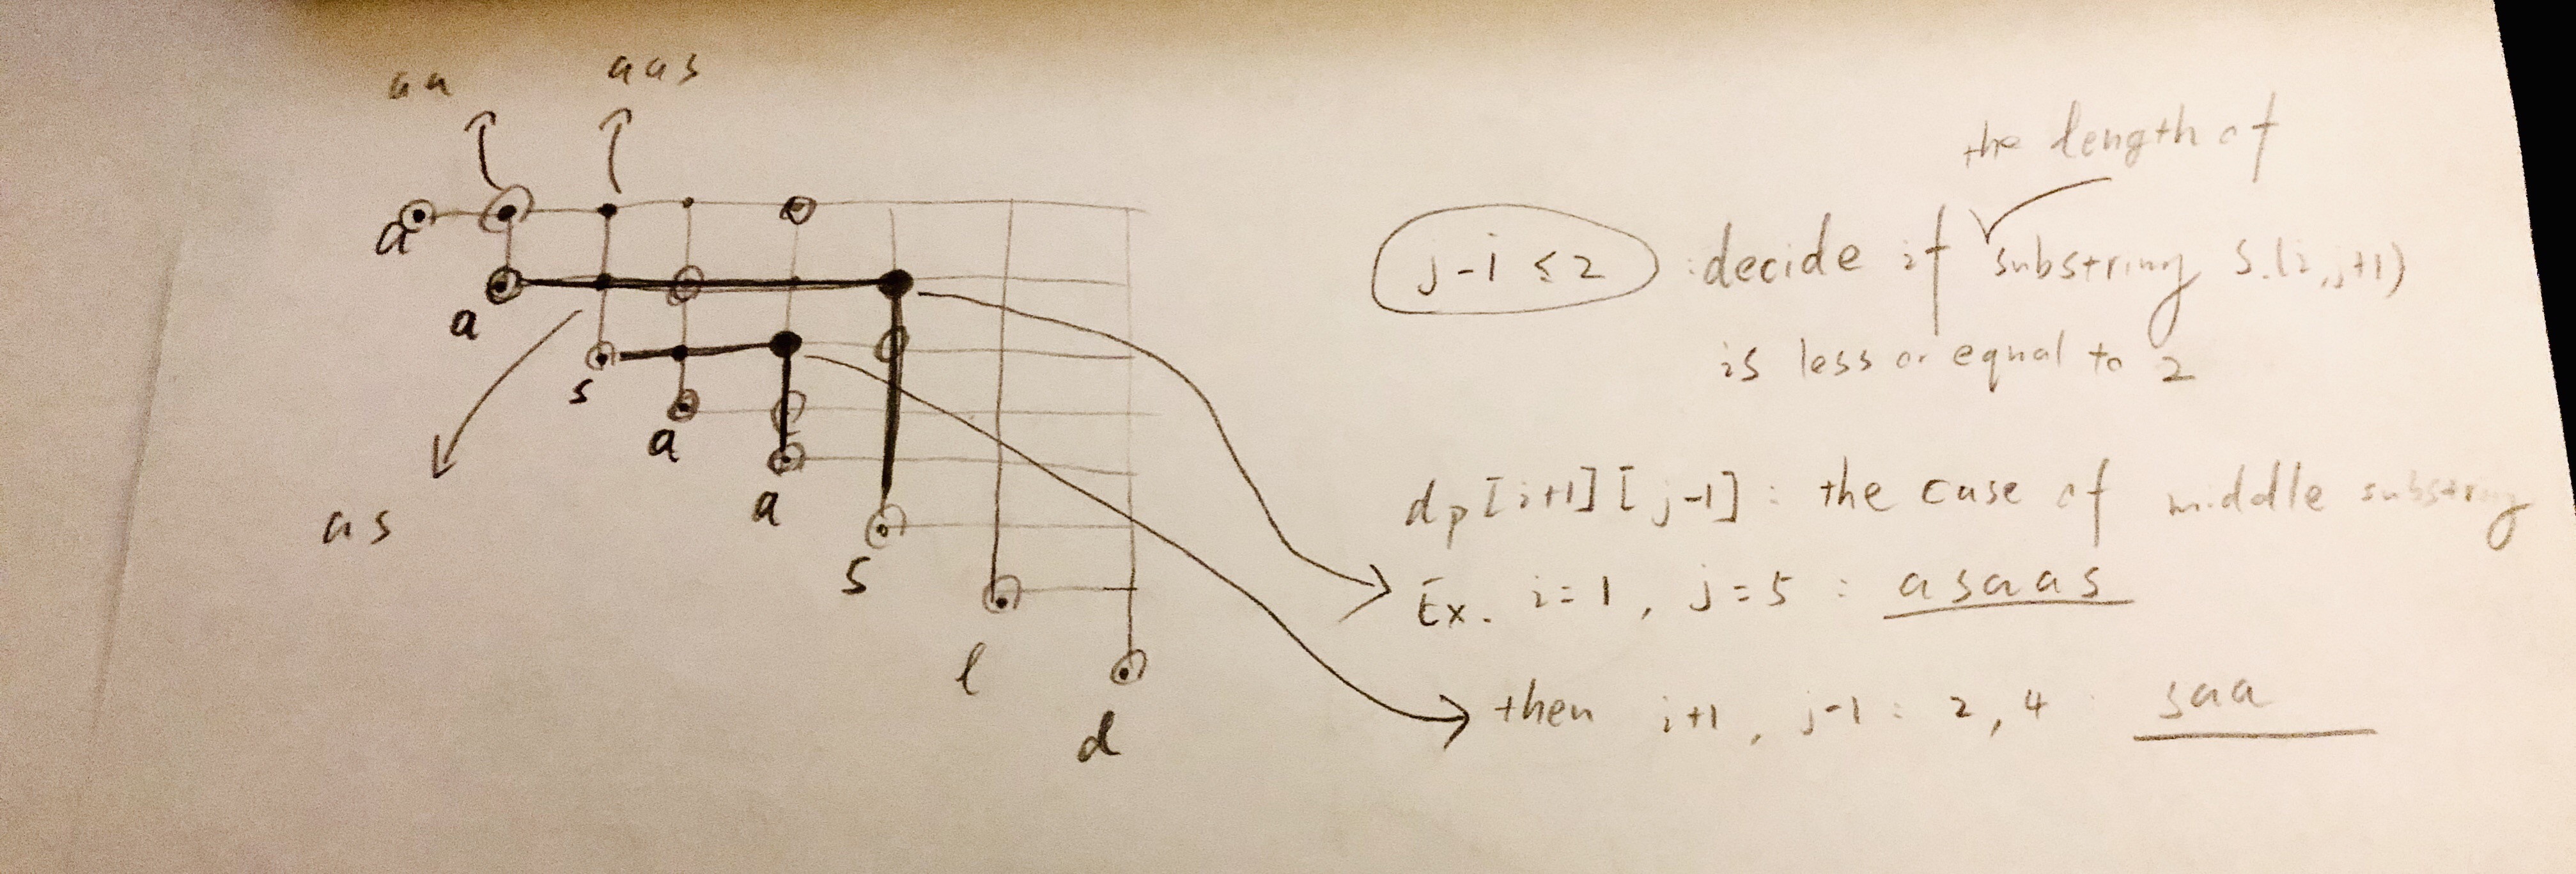 aa
aas
a
a
s
a
a
s
l
d
as
the length of
j-i ≤ 2 : decide if substring s.(i,j+1)
is less or equal to 2
dp[i+1][j-1] : the case of middle substring
Ex. i=1, j=5 : asaas
then i+1, j-1 : 2, 4 saa